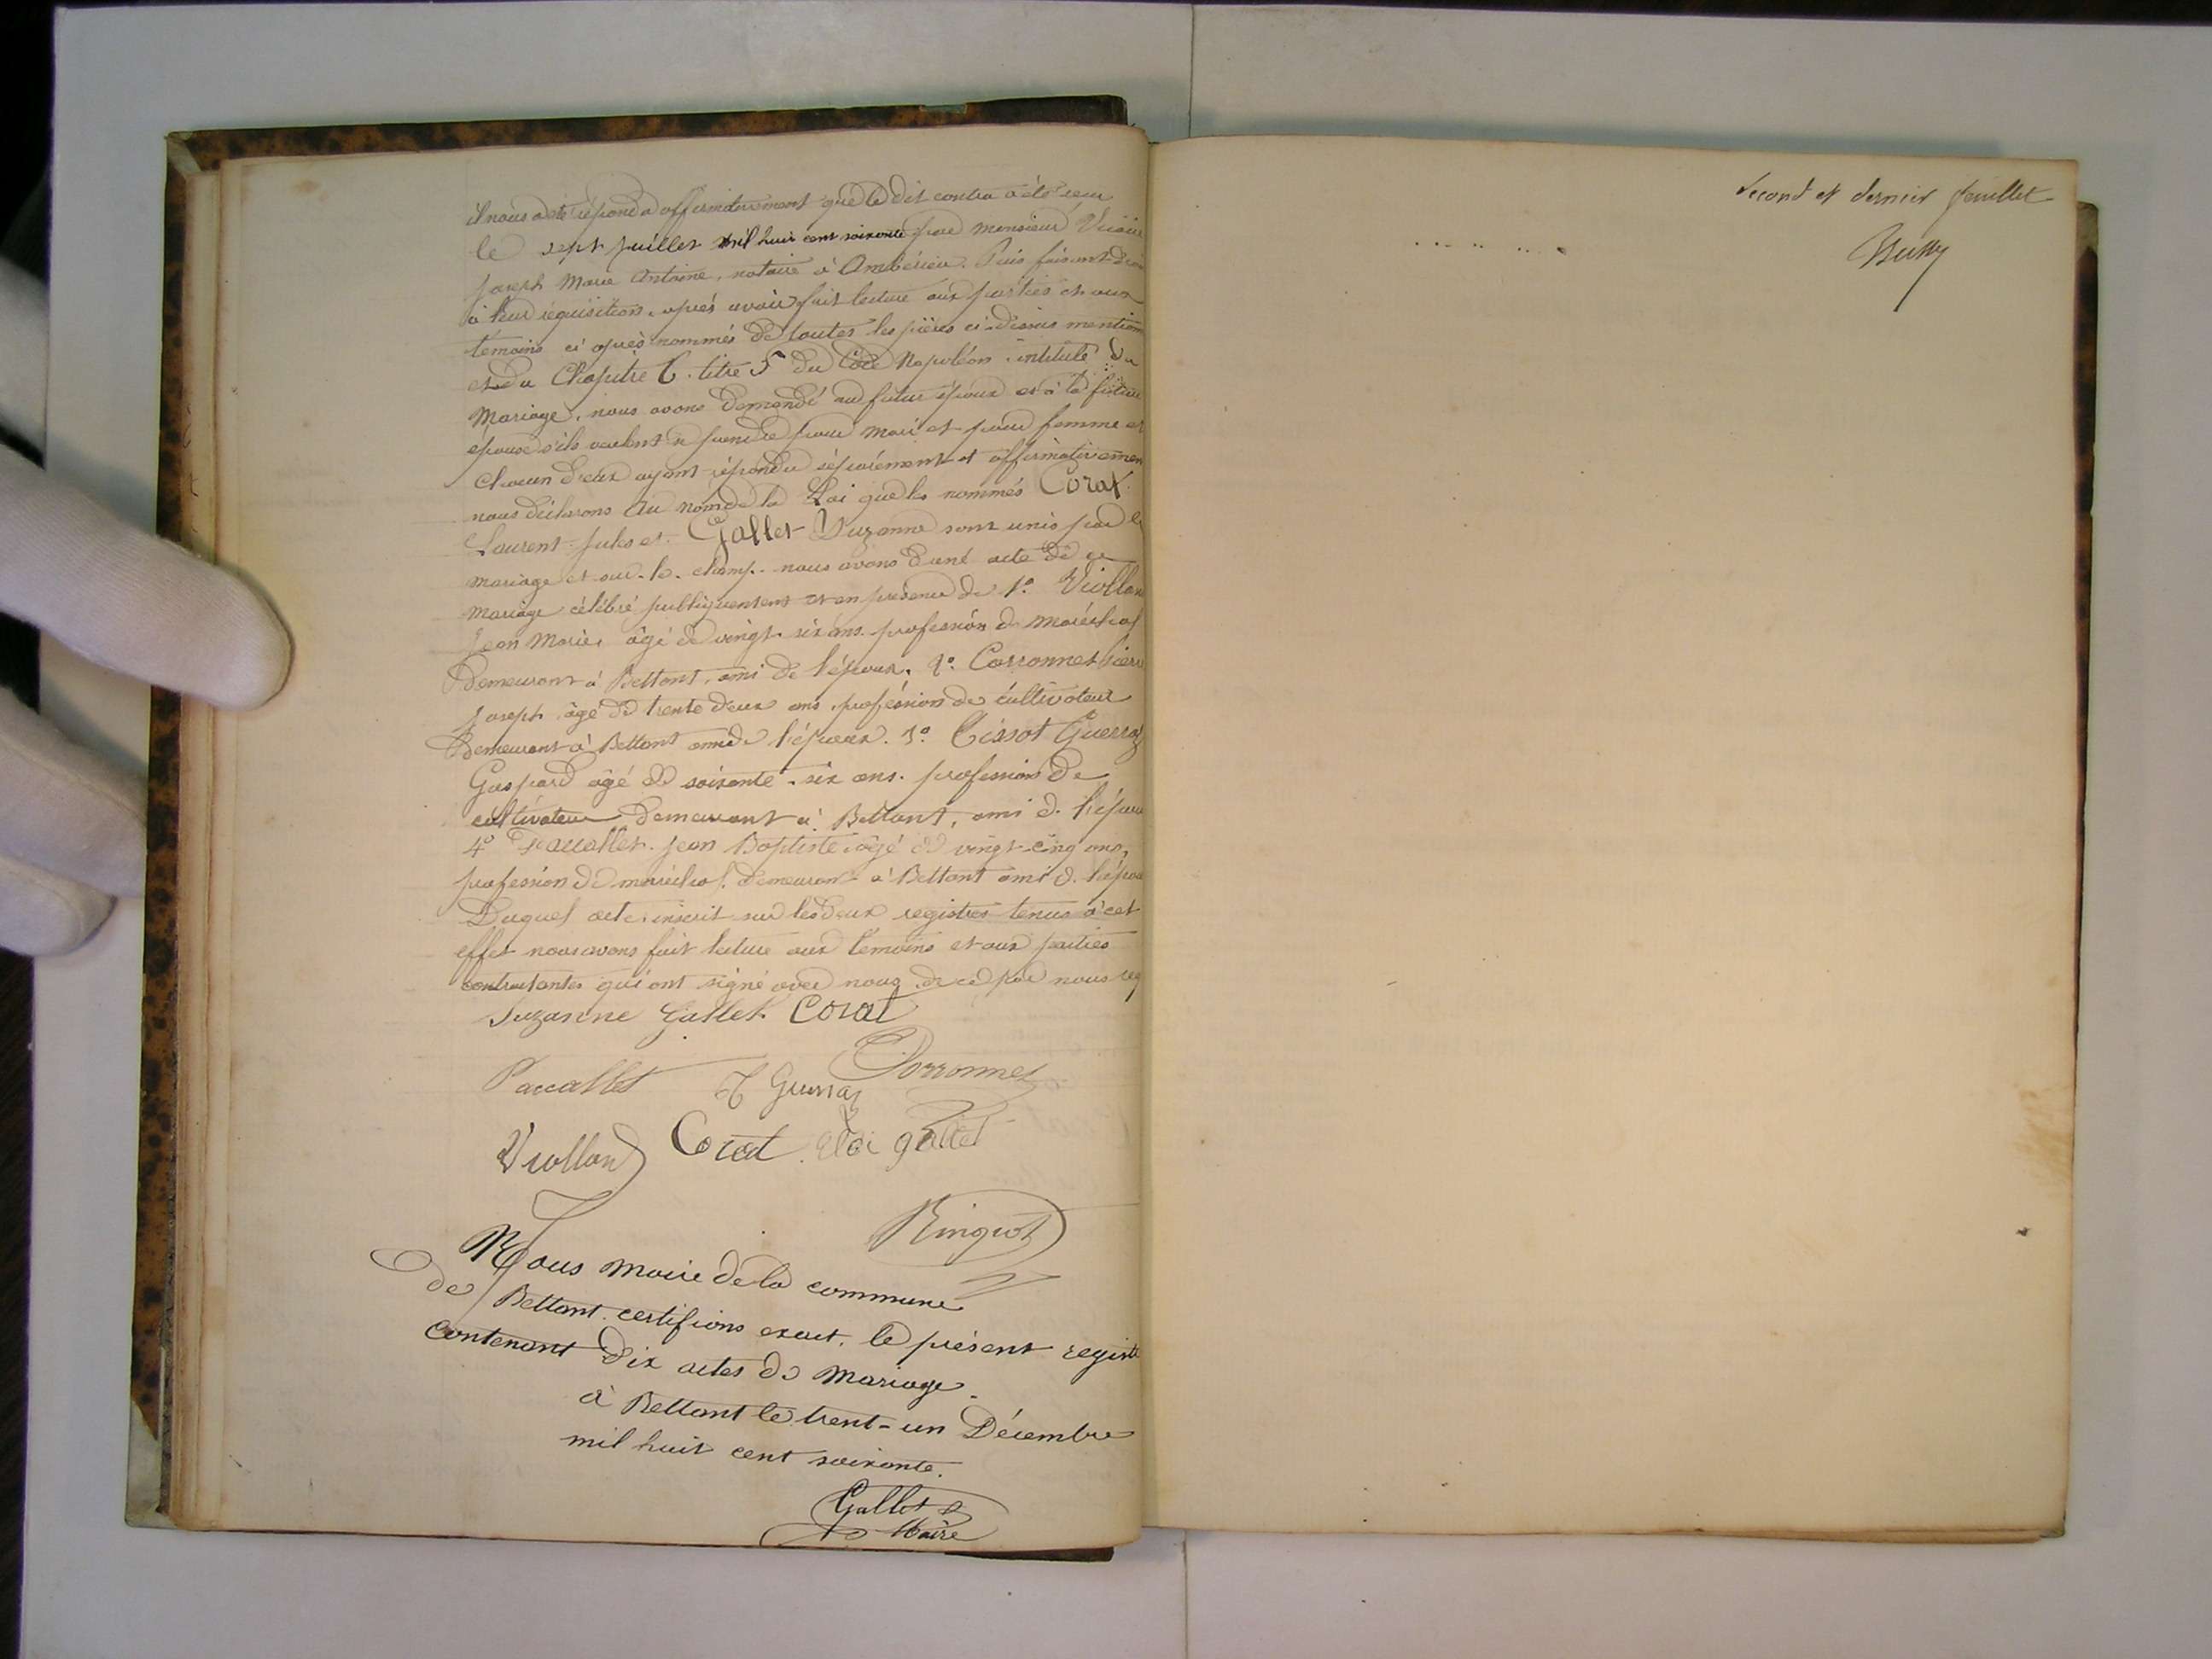 il nous a été répondu affirmativement que le dit contra a été reçu
le sept juillet mil huit cent soixante par monsieur
joseph Marie Antoine, notaire à Ambérieu. Puis faisant droit
à leur réquisition, après avoir fait lecture aux parties et aux
temoins ci après nommés de toutes les pièces ci-dessus mention
et du Chapitre 6. titre 5 du Code Napoléon intitulé du
Mariage, nous avons demandé au futur époux et à la future
épouse s'ils veulent se prendre pour mari et pour femme et
chacun d'eux ayant répondu séparément et affirmativemen
nous déclarons au nom de la Loi que les nommés Corat
Laurent Jules et Gallet Suzanne sont unis par le
mariage et sur-le-champ nous avons dunt acte de ce
mariage célébré publiquement et en présence de 1º Viollan
Jean Marie, âgé de vingt-six ans profession de maréchal
demeurant à Bettant, ami de l'époux. 2º Corronnet pierr
joseph âgé de trente deux ans, profession de cultivateur
demeurant à Bettant ami de l'époux. 3º Tissot Guerraz
Gaspard âgé de soixante-six ans. profession de
cultivateur demeurant à Bettant, ami d. l'épou
4º Paccallet Jean Baptiste âgé de vingt-cinq ans,
profession de maréchal demeurant à Bettant ami d. l'épou
Duquel acte inscrit sur les deux registres tenus à cet
effet nous avons fait lecture aux témoins et aux parties
contractantes qui ont signé avec nous de ce par nous req
Suzanne Gallet Corat
Corronnet
Paccallet T Guerraz
Violland Corat Eloi gallet
Ringuet
Nous maire de la commune
de Bettant certifions exact, le présent registe
contenant Dix actes de Mariage.
à Bettant le trent-un Décembre
mil huit cent soixante.
Gallet
Maire
Second et dernier feuillet